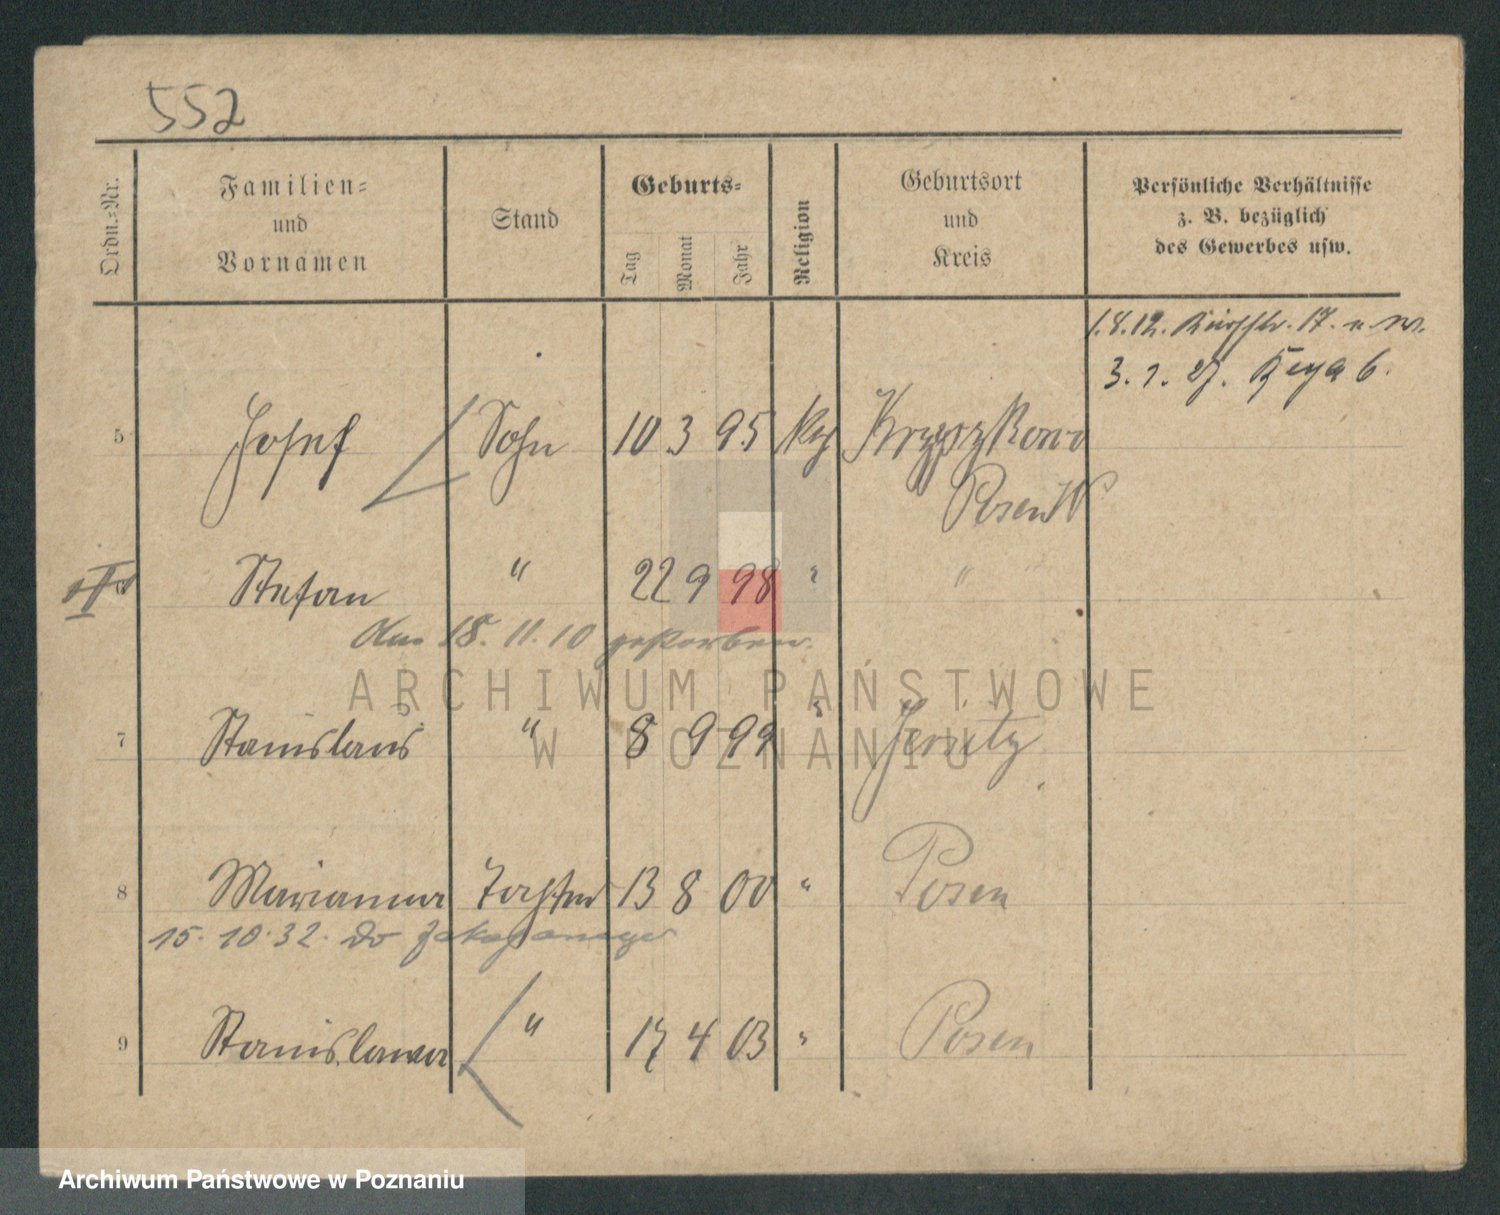 552
Ordn.-Nr.
Familien-
und
Vornamen
Stand
Geburts-
Tag
Monat
Jahr
Religion
Geburtsort
und
Kreis
Persönliche Verhältnisse
z. B. bezüglich
des Gewerbes usw.
1.4.12. 17.
3.1.27. 6.
5 Josef Sohn 10 3 95
Posen W
Stefan " 22 9 98 " "
Am 18.11.10 gestorben.
7 Stanislaus " 8 9 99 " Jersitz
8 Marianna Tochter 13 8 00 " Posen
15.10.32. do Zakopanego
9 Stanislawa " 17 4 03 " Posen
ARCHIWUM PAŃSTWOWE
W POZNANIU
Archiwum Państwowe w Poznaniu